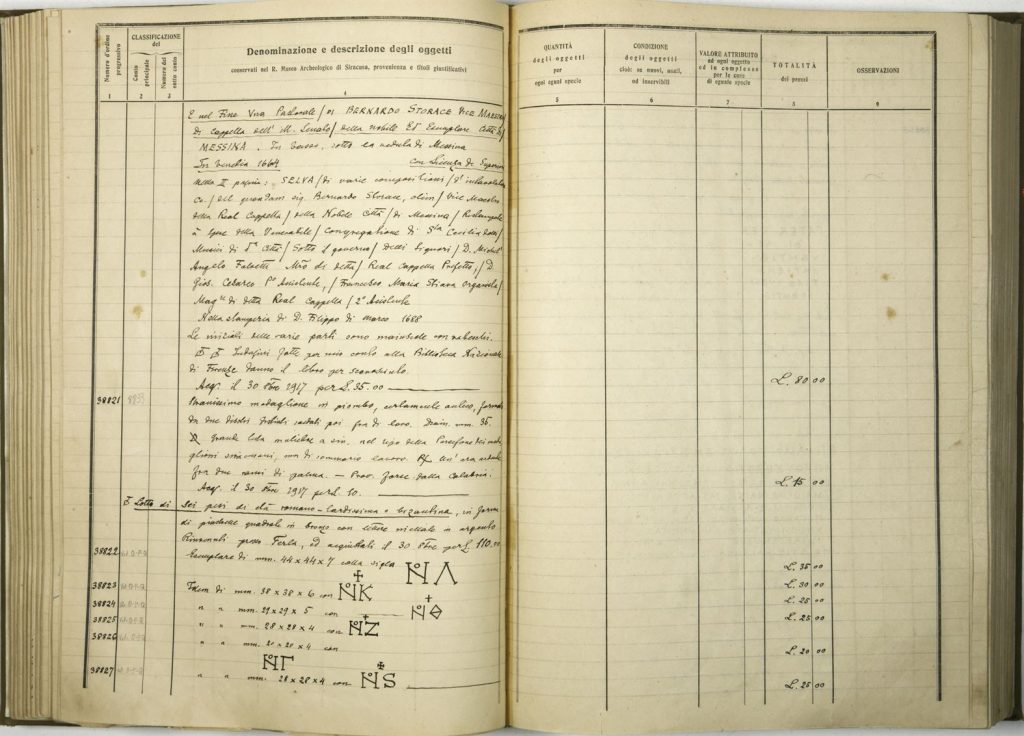 Numero d'ordine progressivo
CLASSIFICAZIONE
del
Conto principale
Numero del sotto conto
Denominazione e descrizione degli oggetti
conservati nel R. Museo Archeologico di Siracusa, provenienza e titoli giustificativi
1 2 3 4
E nel Fine Una Pastorale / DI BERNARDO STORACE VICE MAESTRO
di cappella dell' Ill. Senato / della nobile Ed Esemplare Città di /
MESSINA. In basso, sotto la veduta di Messina
In Venetia 1664 con Licenza de Superiori
nella II pagina: SELVA / di varie compositioni / d'intavolatura
Co. / del quondam sig. Bernardo Storace, olim / Vice Maestro
della Real Cappella / della Nobile Città / di Messina /
à spese della Venerabile / Congregatione di Sta Cecilia
Musici di da Città / Sotto il governo / delli Signori / D. Michel
Angelo Falvetti Mro di detta / Real Cappella Prefetto, / D.
Gios. Cesareo Po Assistente, / Francesco Maria Stiava Organista /
di detta Real Cappella / 2o Assistente
Nella stamperia di D. Filippo di Marco 1688
Le iniziali delle varie parti sono maiuscole con rabeschi.
Indagini fatte per mio conto alla Biblioteca Nazionale
di Firenze danno il libro per sconosciuto.
Acq. il 30 8bre 1917 per L. 35.00
38821 Stranissimo medaglione in piombo, certamente antico, formato
da due dischi saldati poi fra di loro. Diam. mm. 36.
grande testa muliebre a sin. nel tipo della Persefone dei meda
glioni siracusani, ma di sommario lavoro. Un' ara ardente
fra due rami di palma. — Prov. forse dalla Calabria.
Acq. il 30 8bre 1917 per L. 10.
Lotto di sei pesi di età romano-tardissima e bizantina, in forma
di piastrette quadrate in bronzo con lettere niellate in argento
Rinvenuti presso Ferla, ed acquistati il 30 8bre per L. 110.00
38822 Esemplare di mm. 44 x 44 x 7 colla sigla N Λ
38823 Idem di mm. 38 x 38 x 6 con N K
38824 " " mm. 29 x 29 x 5 con N Θ
38825 " " mm. 28 x 28 x 4 con N Z
38826 " " mm. 20 x 20 x 4 con
N Γ
38827 " " mm. 28 x 28 x 4 con N S
QUANTITÀ
degli oggetti
per
ogni egual specie
CONDIZIONE
degli oggetti
cioè: se nuovi, usati,
od inservibili
VALORE ATTRIBUITO
ad ogni oggetto
ed in complesso
per le cose
di eguale specie
TOTALITÀ
dei prezzi
OSSERVAZIONI
5 6 7 8 9
L. 80 00
L. 15 00
L. 35 00
L. 30 00
L. 25 00
L. 25 00
L. 20 00
L. 25 00